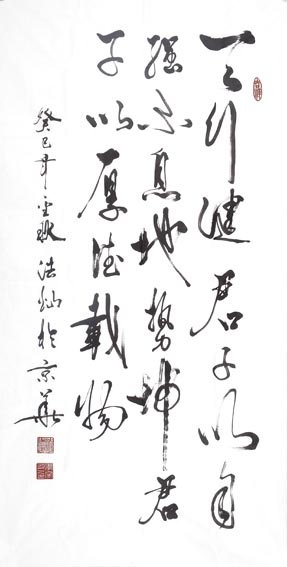 天行健君子以自
强不息地势坤君
子以厚德载物
癸巳年金秋浩灿于京华